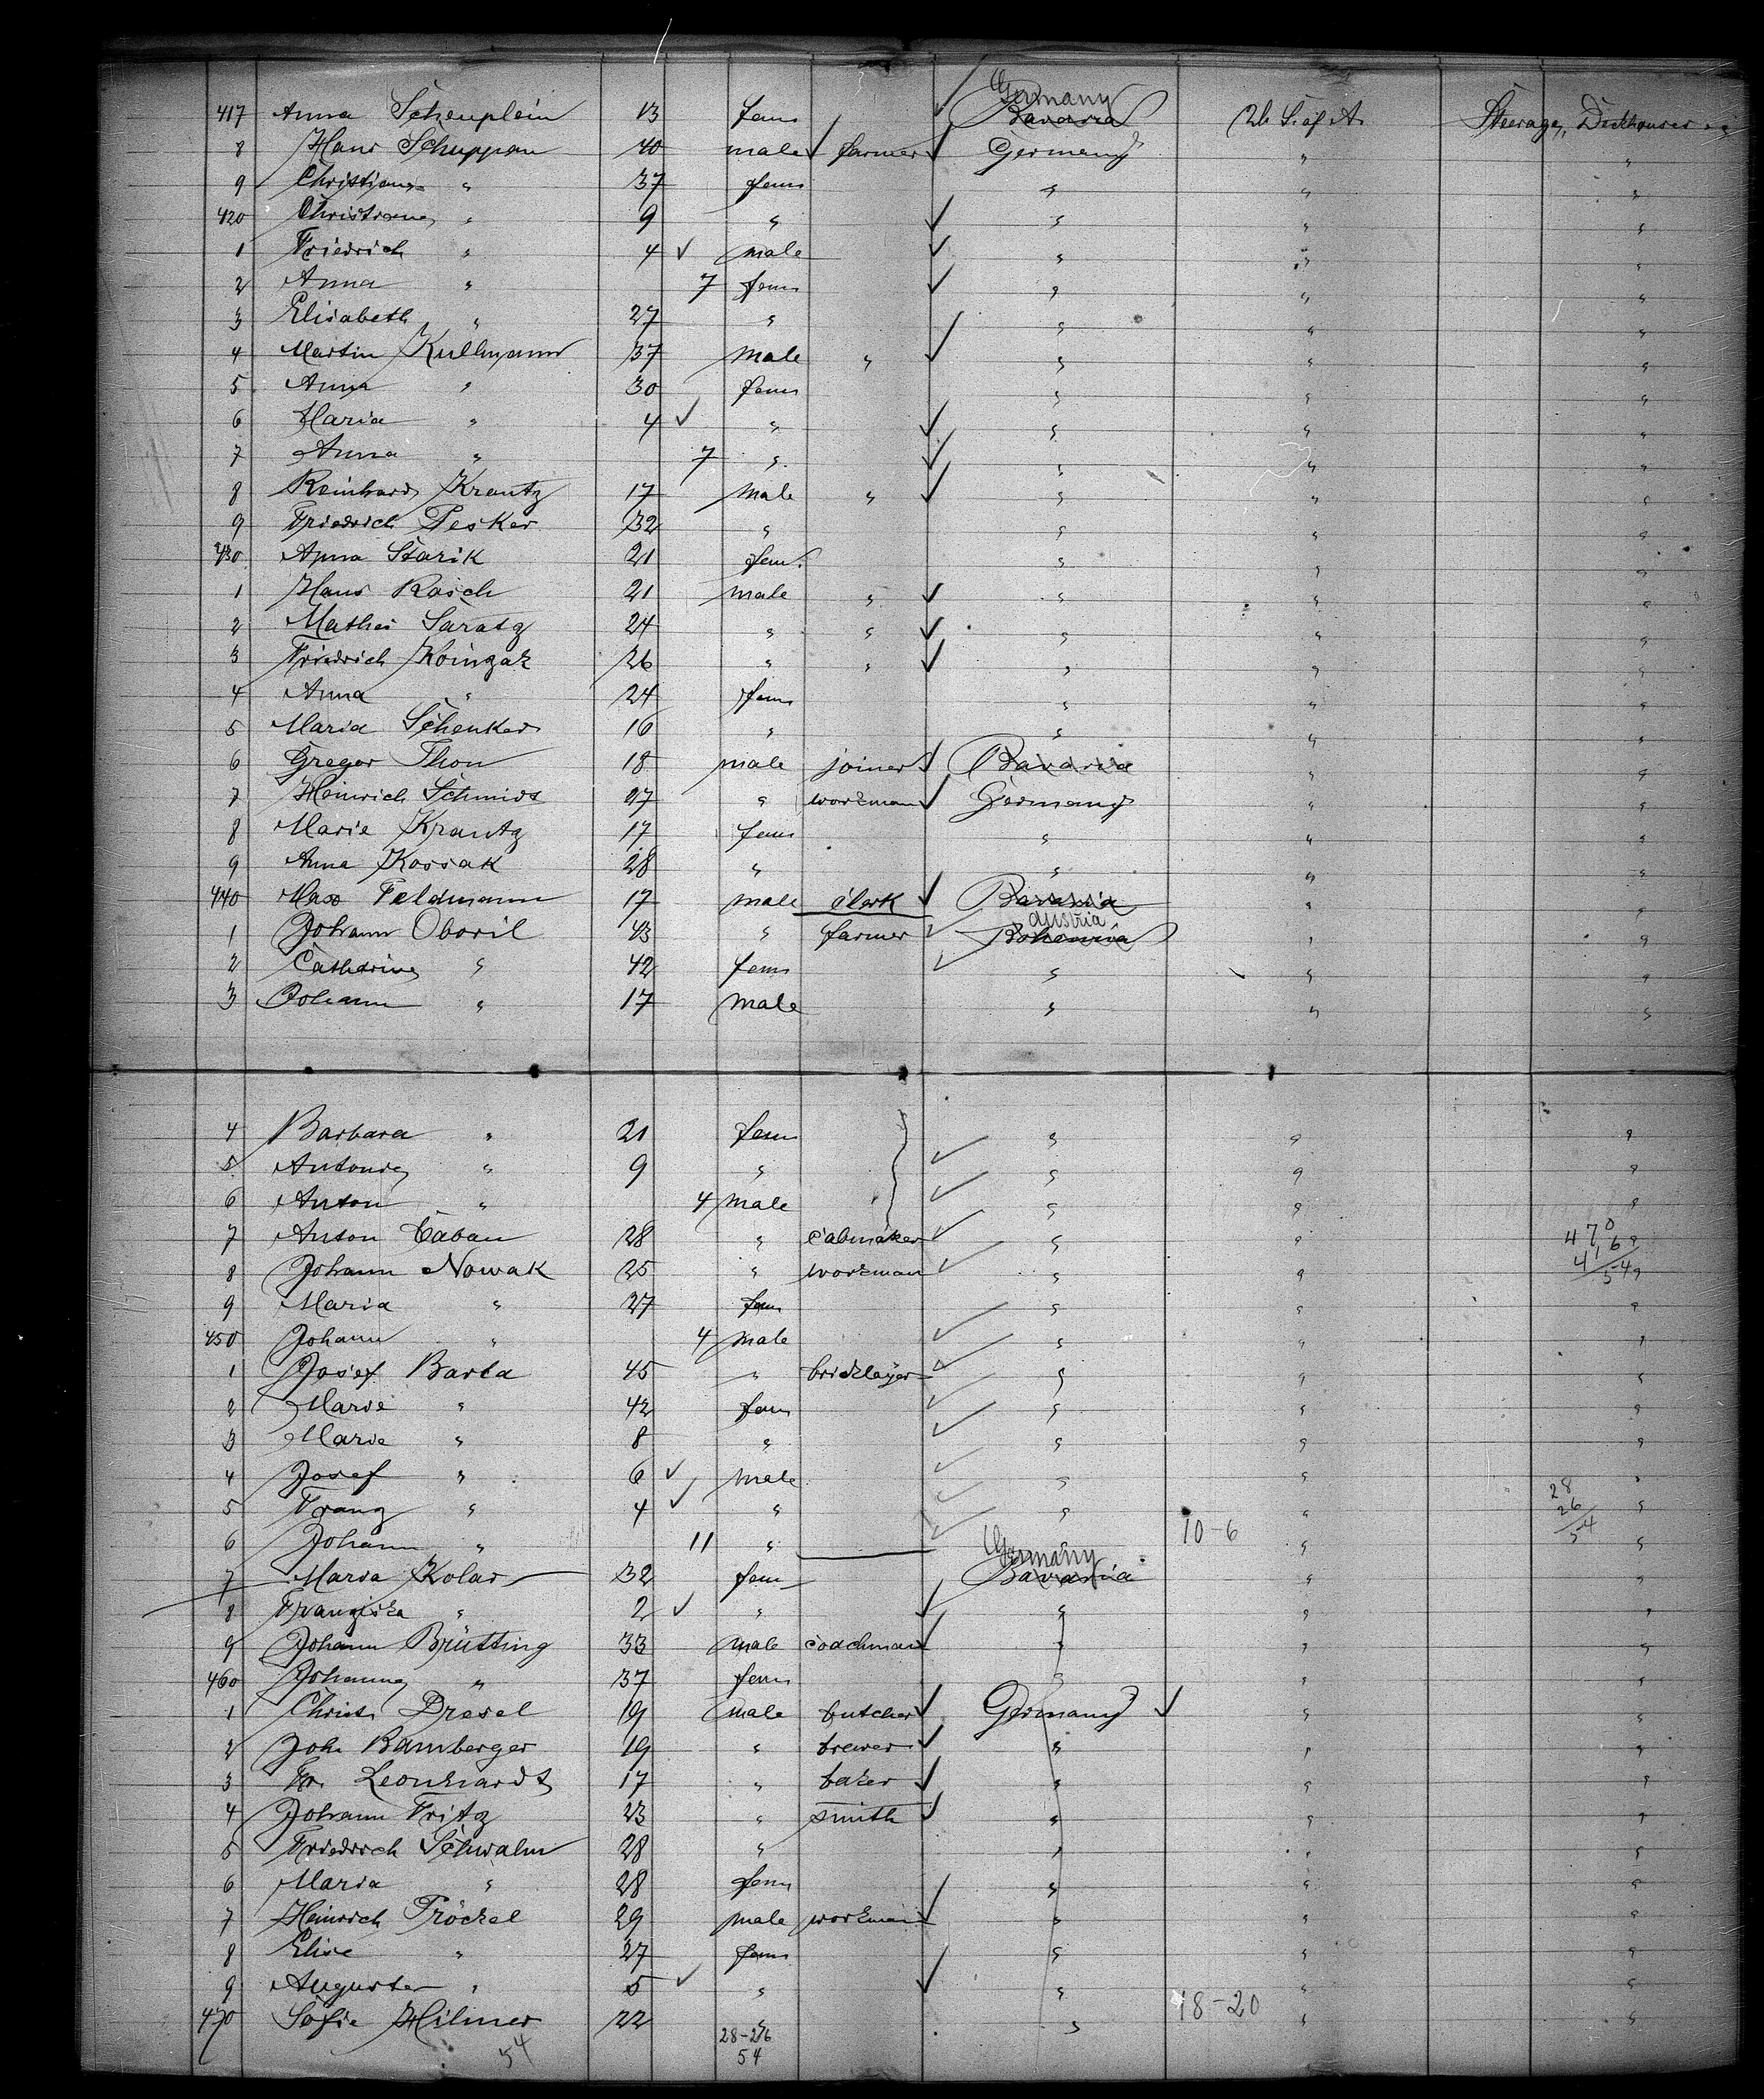 417 Anna Scheuplein 13 fem Germany Bavaria U. S. of A. Steerage, Deckhouses
8 Hans Schuppan 40 male farmer Germany " "
9 Christiane " 37 fem " " "
420 Christiane " 9 " " " "
1 Friedrich " 4 male " " "
2 Anna " 7 fem " " "
3 Elisabeth " 27 " " " "
4 Martin Kullmann 37 male " " " "
5 Anna " 30 fem " " "
6 Maria " 4 " " " "
7 Anna " 7 " " " "
8 Reinhard Krantz 17 male " " " "
9 Friedrich Pesker 32 " " " "
430 Anna Starik 21 fem. " " "
1 Hans Rasch 21 male " " " "
2 Mathes Saratz 24 " " " " "
3 Friedrich 26 " " " " "
4 Anna " 24 fem " " "
5 Maria Schenker 16 " " " "
6 Gregor Thon 18 male joiner Bavaria " "
7 Heinrich Schmidt 27 " workman Germany " "
8 Marie Krantz 17 fem " " "
9 Anna Kossak 28 " " " "
440 Max Feldmann 17 male clerk Bavaria " "
1 Johann Oboril 43 " farmer Austria Bohemia " "
2 Catharina " 42 fem " " "
3 Johann " 17 male " " "
4 Barbara " 21 fem " " "
5 Antonie " 9 " " " "
6 Anton " 4 male " " "
7 Anton Caban 28 " cabmaker " " " 470
8 Johann Nowak 25 " workman " " " 416
54
9 Maria " 27 fem " " "
450 Johann " 4 male " " "
1 Josef Barta 45 " bricklayer " " "
2 Marie " 42 fem " " "
3 Marie " 8 " " " "
4 Josef " 6 male " " "
5 Franz " 4 " " " " 28
26
54
6 Johann " 11 " " 10-6 " "
7 Maria Kolar 32 fem Germany Bavaria " "
8 Franziska " 2 " " " "
9 Johann Brütting 33 male coachman " " "
460 Johanna " 37 fem " " "
1 Christ. Dresel 19 male butcher Germany " "
2 Joh. Bamberger 19 " brewer " " "
3 Fr. Leonhardt 17 " baker " " "
4 Johann Fritz 23 " smith " " "
5 Friedrich Schwalm 28 " " " "
6 Maria " 28 fem " " "
7 Heinrich Pröckel 29 male workman " " "
8 Elise " 27 fem " " "
9 Auguste " 5 " " " "
470 Sofie Hilmer 22 " " 18-20 " "
54 28-26
54